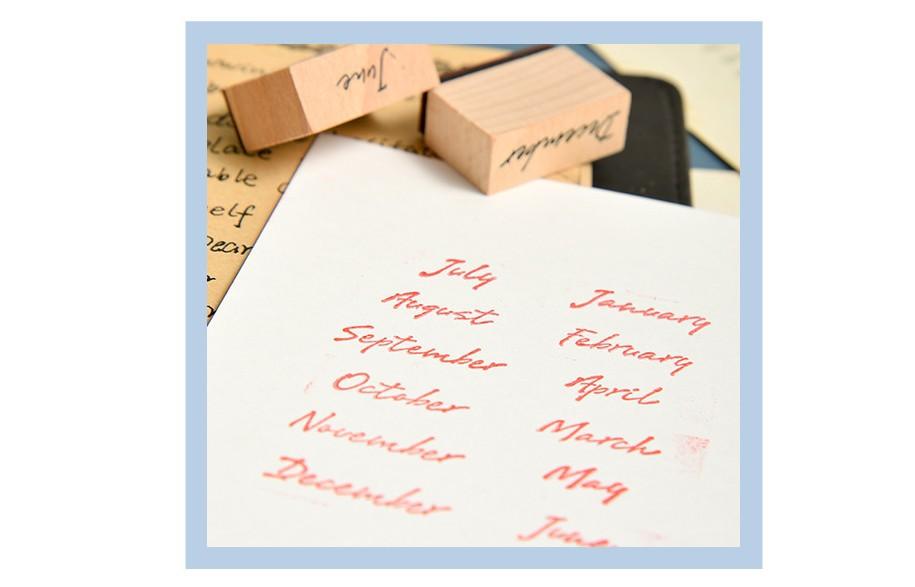 June
December
elate
able
elf
July
August
September
October
November
December
January
February
April
March
May
June